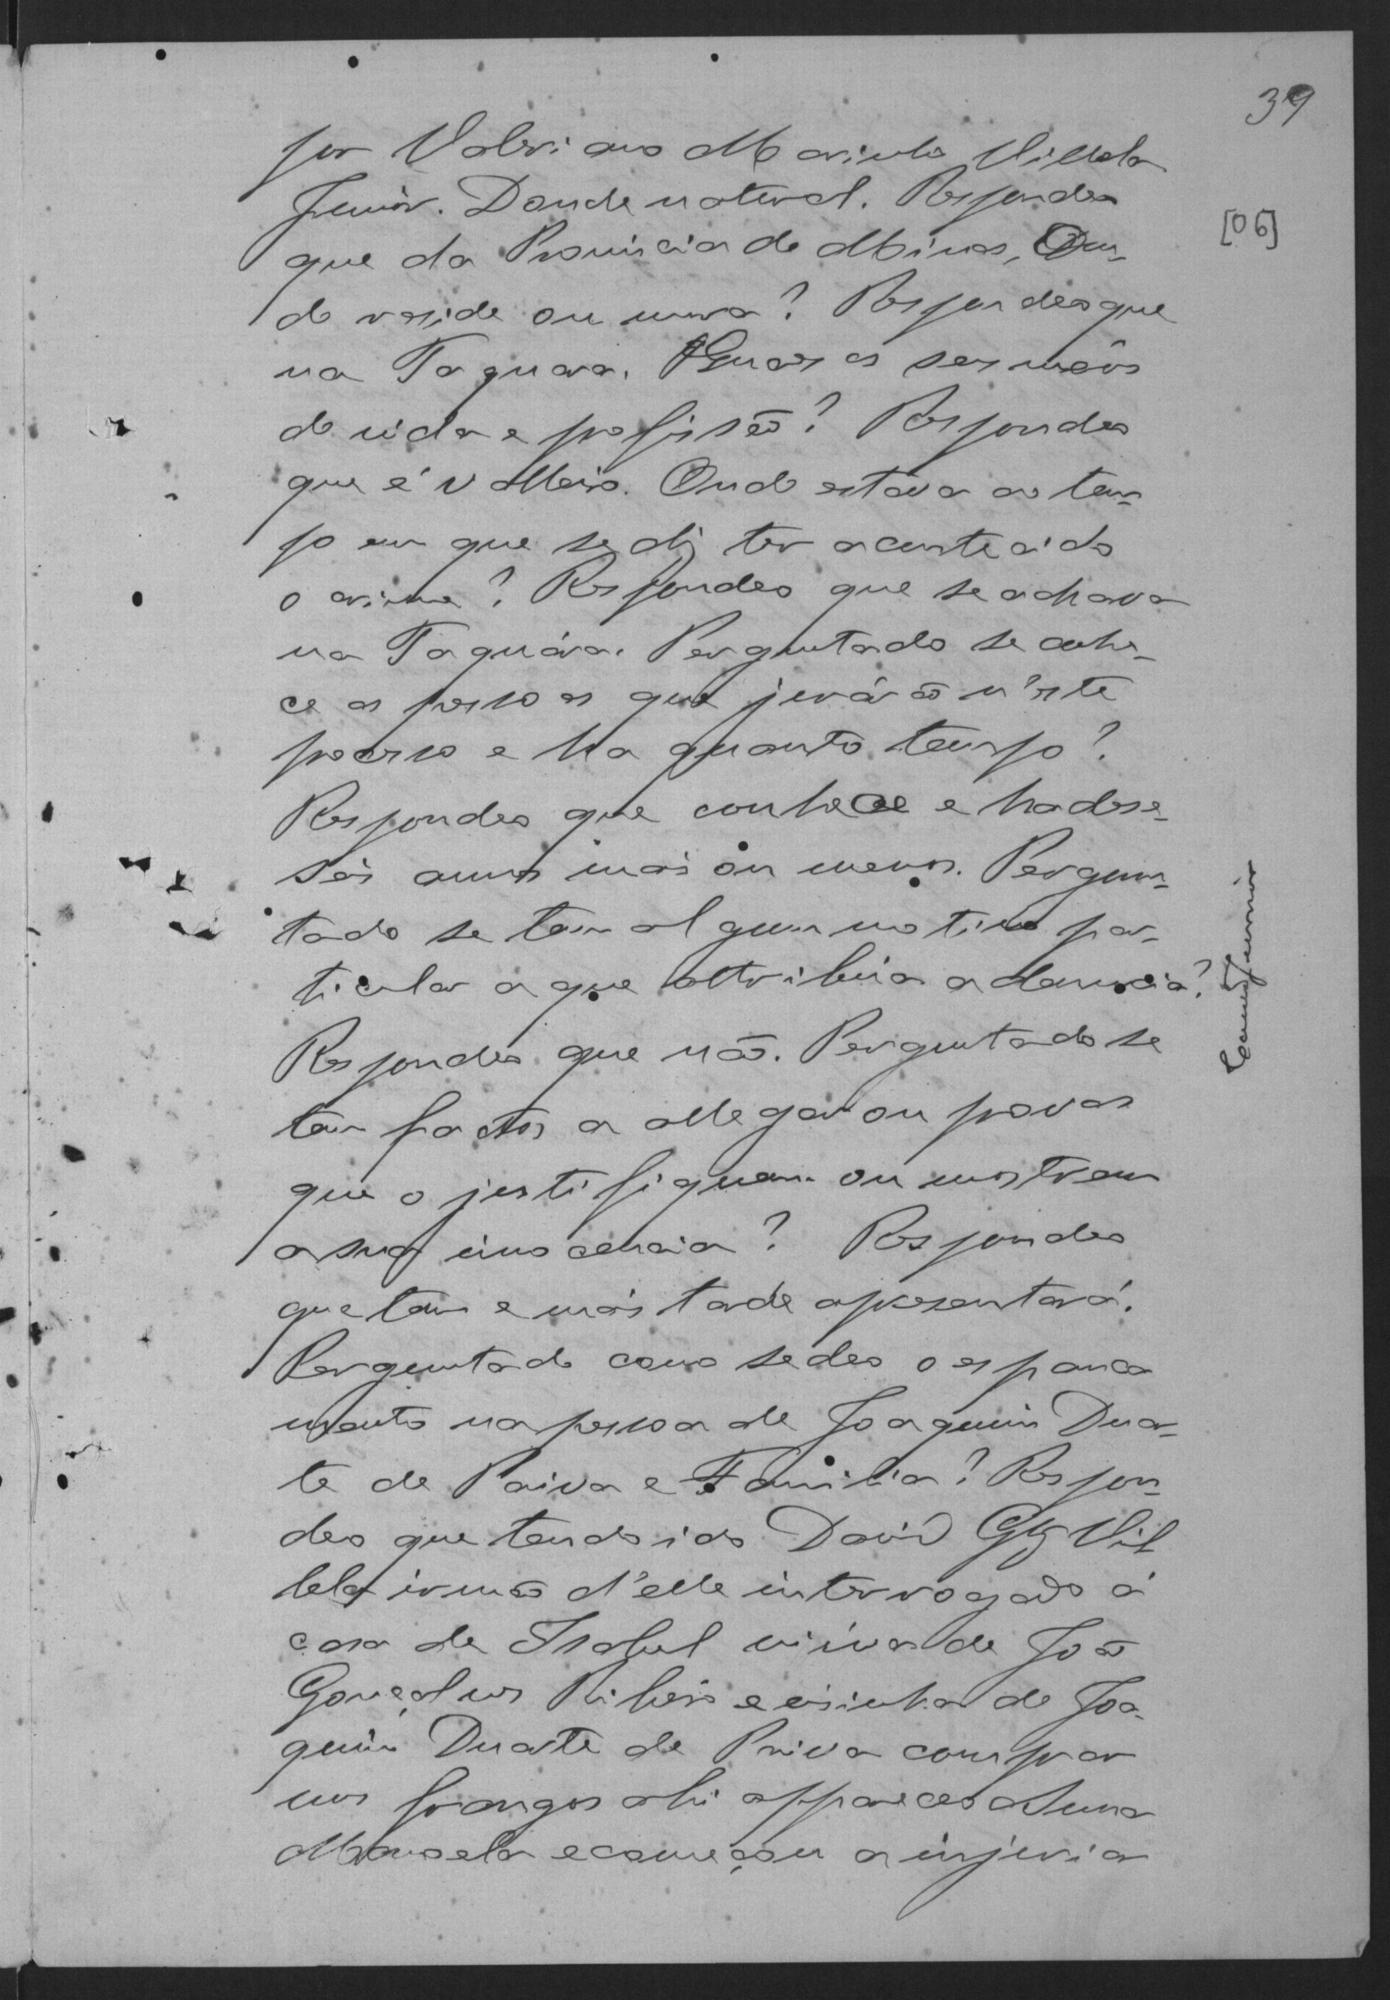 39
[06]
por Valeriano Marinho Villela
Junior. Donde natural. Respondeo
que da Provincia de Minas, On-
de reside ou mora? Respondeo que
na Taquara. Quaes os seus meios
de vida e profissão? Respondeo
que é volteiro. Onde estava ao tem-
po em que se diz ter acontecido
o crime? Respondeo que se achava
na Taquára. Perguntado se conhe-
ce as pessoas que jurárão n'este
processo e ha quanto tempo?
Respondeo que conhece e ha dese-
seis annos mais ou menos. Pergun-
tado se tem algum motivo par-
ticular a que attribúa a denuncia?
Respondeo que não. Perguntado se
tem factos a allegar ou provas
que o justifiquem ou mostrem
a sua innocencia? Respondeo
que tem e mais tarde apresentará.
Perguntado como se deo o espanca
mento na pessoa de Joaquim Duar-
te de Paiva e Familia? Respon-
deo que tendo ido David Glz Vil
lela irmão d'elle interrogado á
casa de Isabel viúva de João
Gonçalves Ribeiro e visinha de Joa-
quim Duarte de Paiva comprar
uns frangos ahi appareceo a suna
Manoela e começou a injuria
Junior